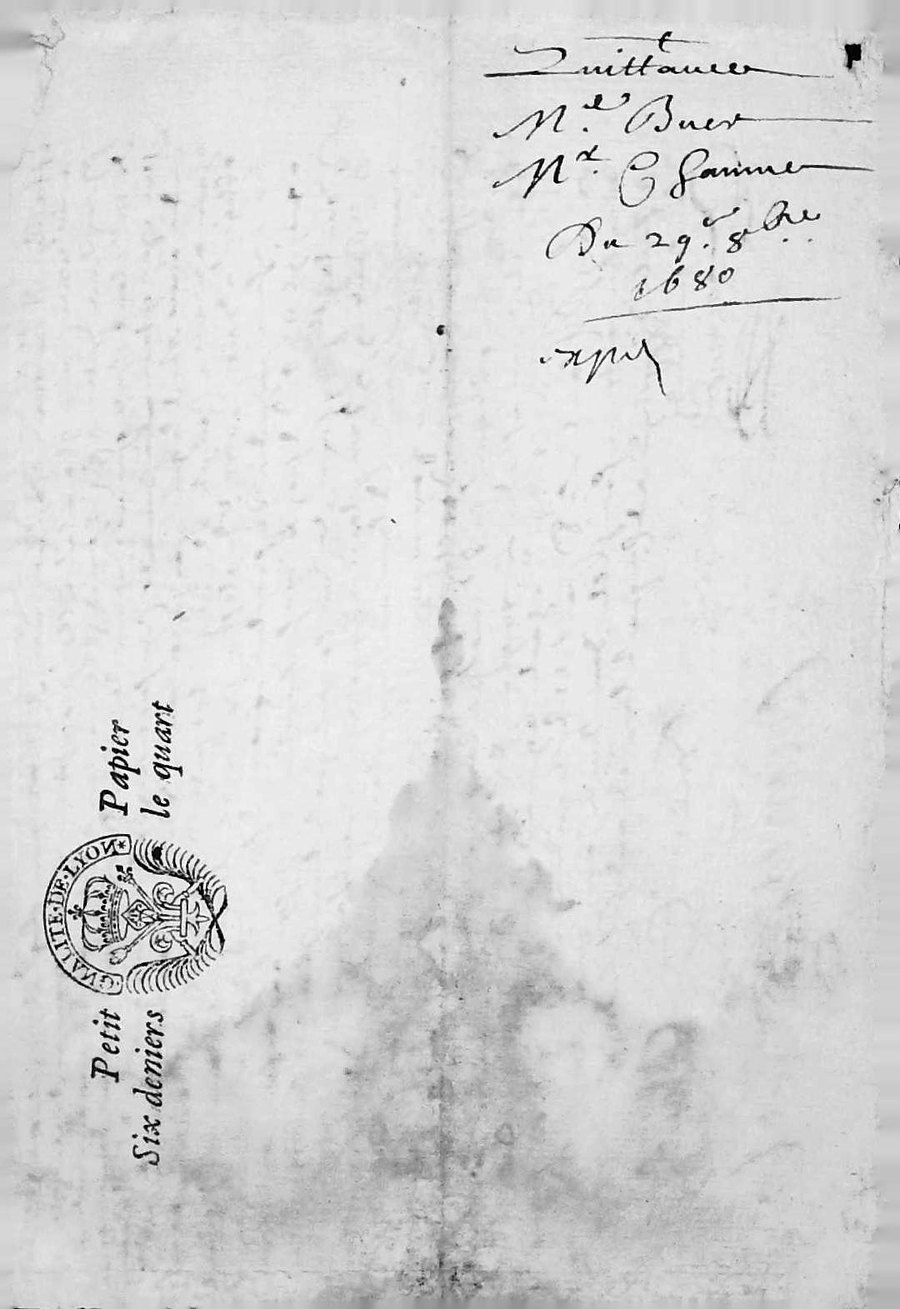 Quittance
Mr. Buer
Mr. C
Du 29e. 8bre
1680
expd
Petit Papier
Six deniers le quart
GNALITE·DE·LYON*